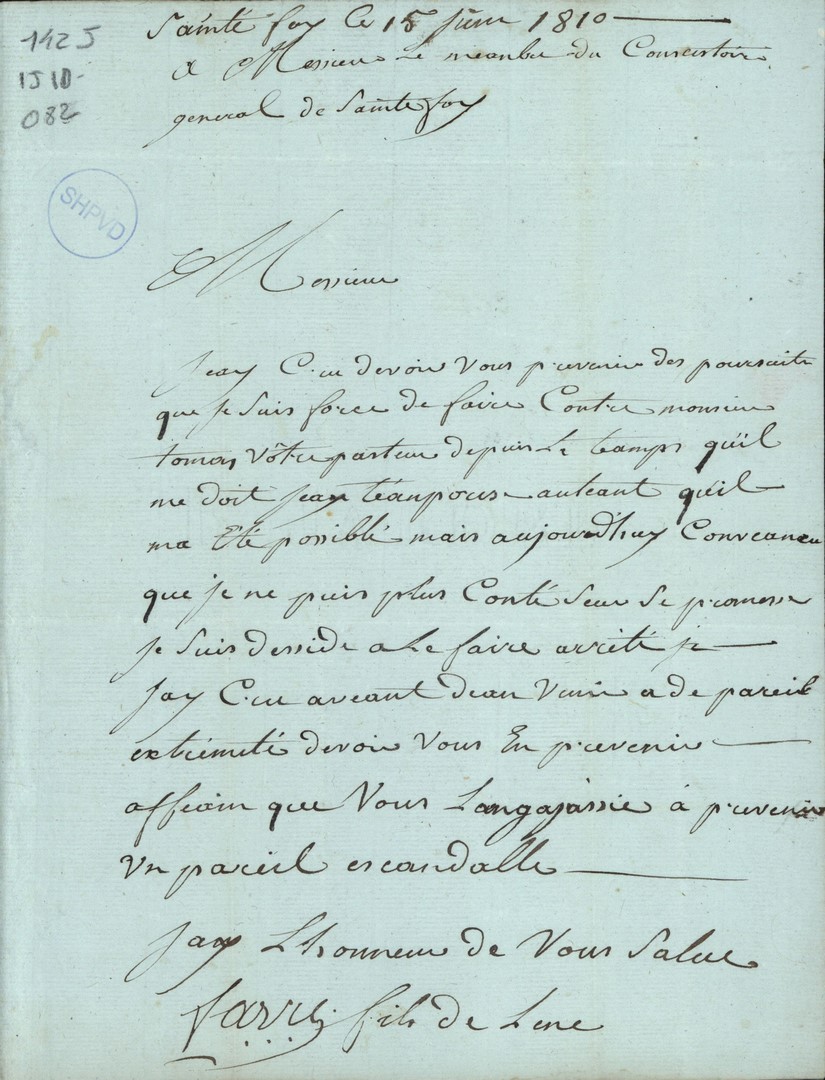 1425
1J10-
082
Sainté foy Ce 15 Juin 1810
A Messieur Le meanbre du Concestoire
general de Sainte foy
SHPVD
Messieur
Jeay Cru devoir Vous prevenir des poursuite
que je suis force de faire Contre monsieur
tomas Vôtre pasteur depuis Le teamps qu'il
me doit jeay téanporise auteant qu'il
ma Été possiblé mais aujourd'huy Conveancu
que je ne puis plus Conté seur se promesse
je suis desside a Le faire arrité je
Jay Cru aveant dean Venir a de pareil
extrémité devoir Vous En prevenir
affeain que Vous Langajassie à prevenir
Un pareil escandalle
Jay Lhonneur de Vous Salue
farre fils de Lene